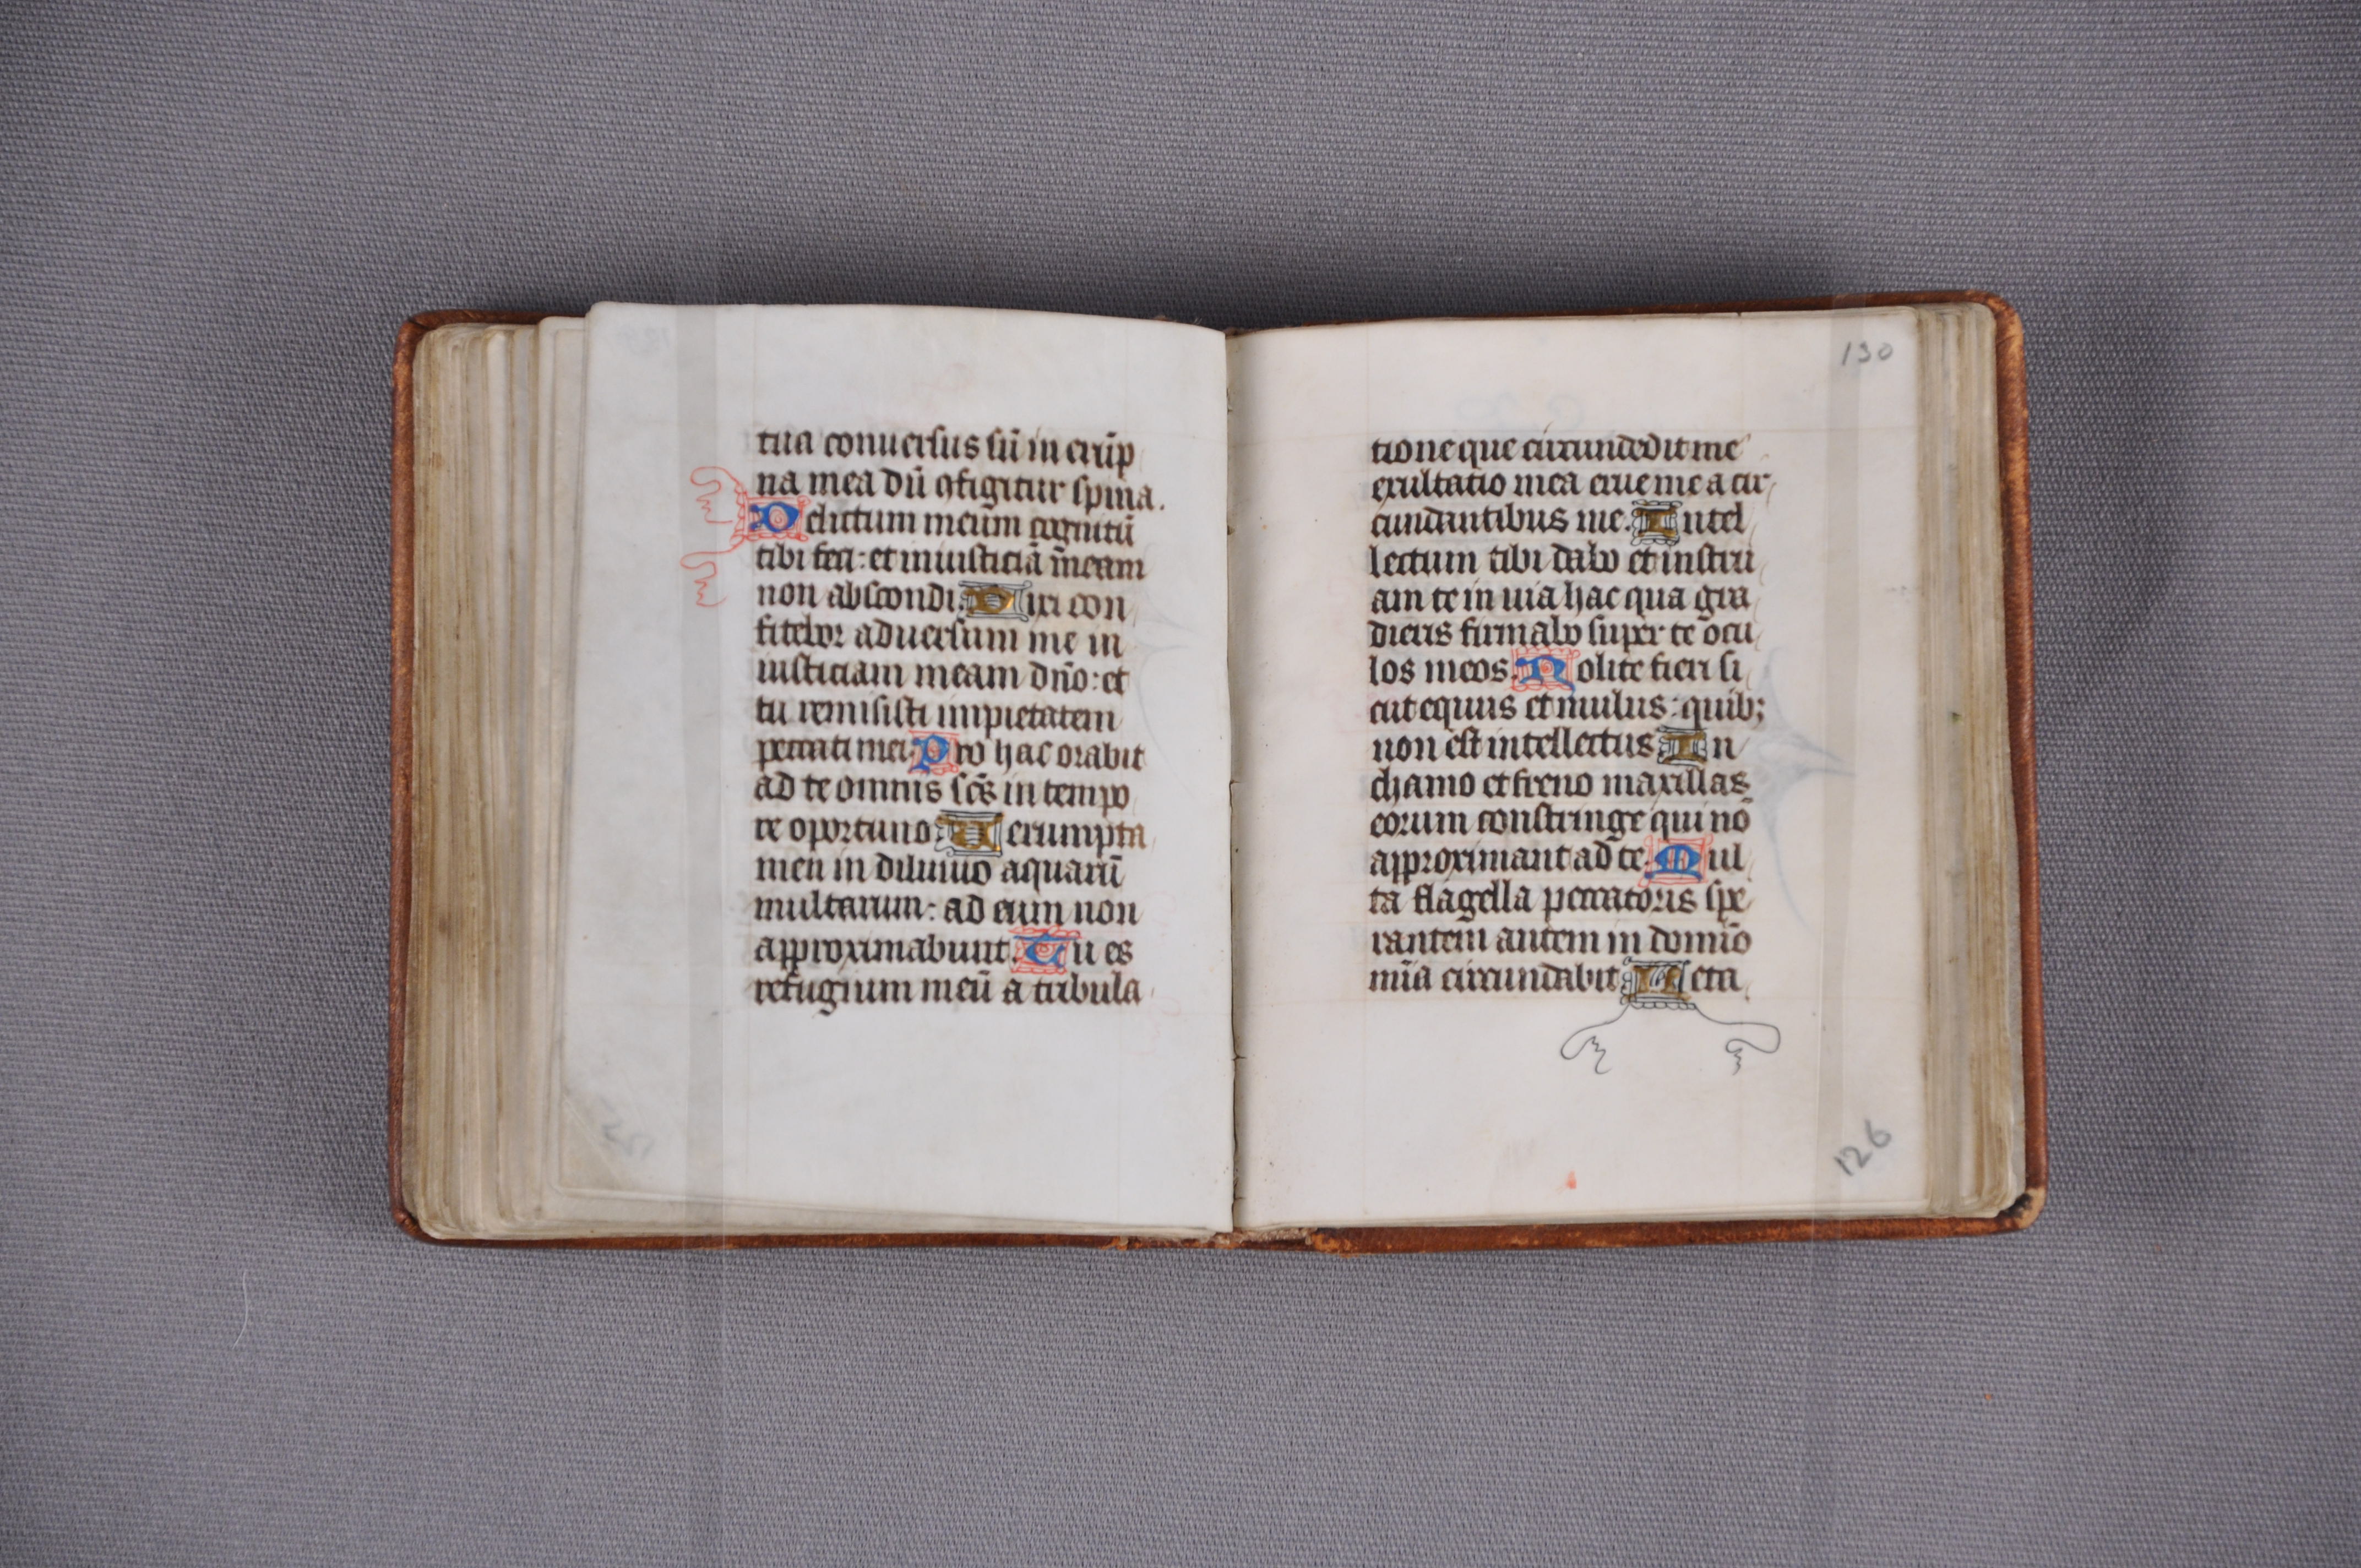 tua conuersus sū in erūp
na mea dū ꝯfigitur spina.
Delictum meum cognitū
tibi feci: et iniusticiā meam
non abscondi. Dixi con
fitebor aduersum me in
iusticiam meam dño: et
tu remisisti impietatem
peccati mei. Pro hac orabit
ad te omnis scs̄ in tempo
re oportuno. Uerumpta
men in diluuio aquarū
multarum: ad eum non
approximabunt. Tu es
refugium meū a tribula
130
tione que circundedit me
exultatio mea erue me a cir
cundantibus me. Intel
lectum tibi dabo et instru
am te in uia hac qua gra
dieris firmabo super te ocu
los meos. Nolite fieri si
cut equus et mulus: quib;
non est intellectus. In
chamo et freno maxillas
eorum constringe qui nō
approximant ad te. Mul
ta flagella peccatoris spe
rantem autem in domino
mīa circundabit. Leta
126